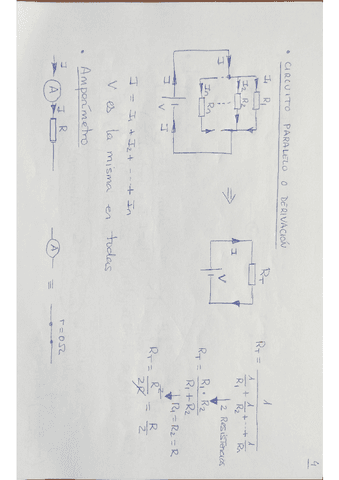 4
• CIRCUITO PARALELO O DERIVACIÓN
I₁ R₁
I₂ R₂
In Rn
I I
I V I
⇒
R_T
I
V
R_T = 1 / (1/R₁ + 1/R₂ + ... + 1/Rn)
2 RESISTENCIAS
R_T = R₁ · R₂ / (R₁ + R₂)
R₁ = R₂ = R
R_T = R² / 2R = R / 2
I = I₁ + I₂ + ... + In
V es la misma en todas
• Amperímetro
I A I R
A ≡ r = 0Ω